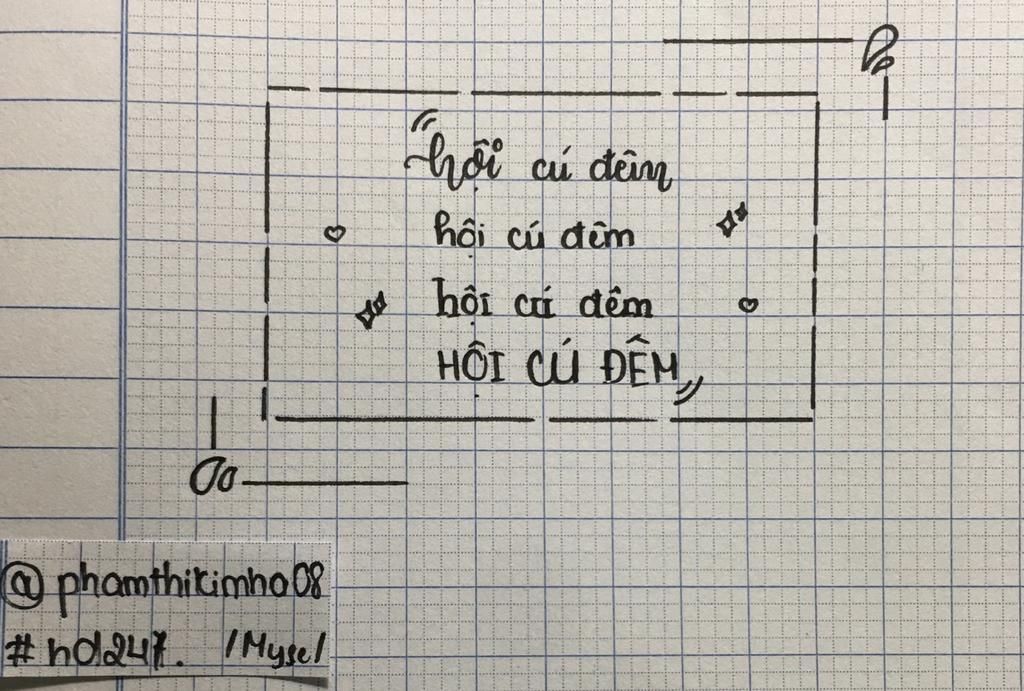 "hội cú đêm
hội cú đêm
hội cú đêm
HỘI CÚ ĐÊM"
@phamthikimho08
#nd247. /Myse/